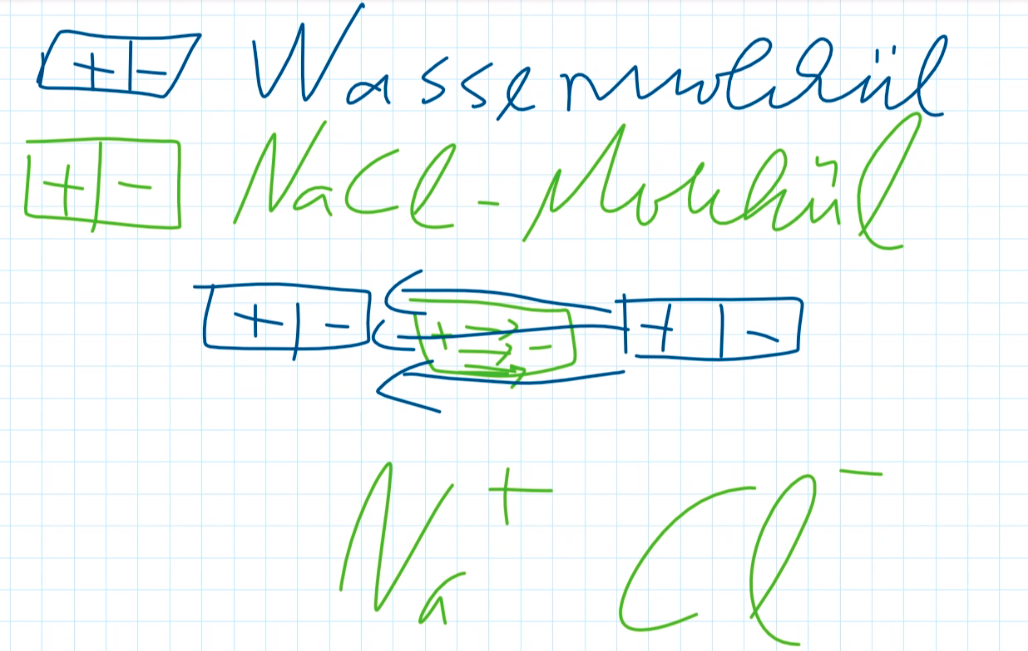 + - Wassermolekül
+ - NaCl-Molekül
+ - + - + -
Na⁺ Cl⁻